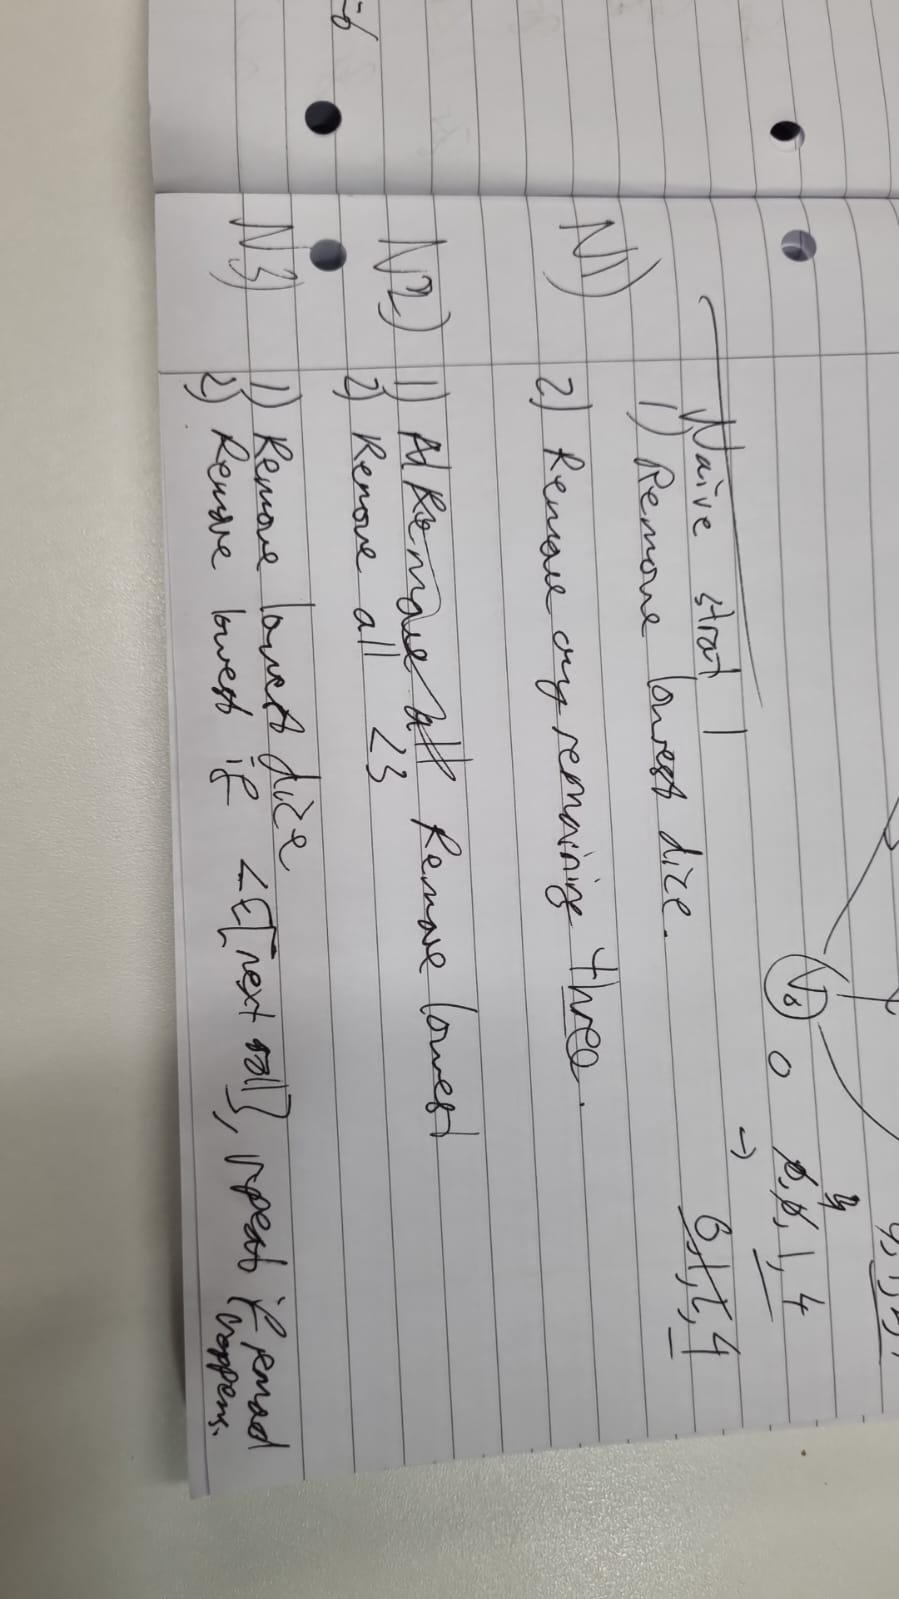 V₀ 0
0, 0, 1, 4
→
0, 1, 1, 4
Naive strat 1
N1) 1) Remove lowest dice.
2) Remove any remaining three.
N2) 1) Remove all Remove lowest
2) Remove all <3
=6
N3) 1) Remove lowest dice
2) Remove lowest if <E[next roll], repeat if
happens.